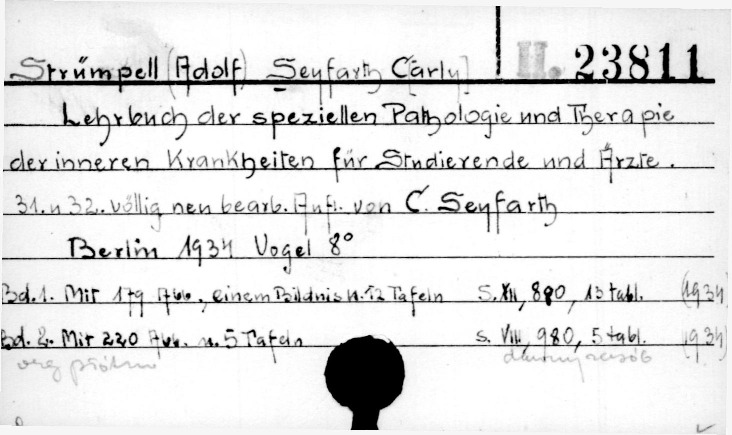 II. 23811
Strümpell (Adolf) Seyfarth C[arly]
Lehrbuch der speziellen Pathologie und Therapie
der inneren Krankheiten für Studierende und Ärzte.
31. u 32. völlig neu bearb. Aufl. von C. Seyfarth
Berlin 1934 Vogel 8°
Bd. 1. Mit 179 Abb., einem Bildnis u. 12 Tafeln S. XII, 890, 13 tabl. (1934)
Bd. 2. Mit 220 Abb. u. 5 Tafeln S. VIII, 980, 5 tabl. (1934)